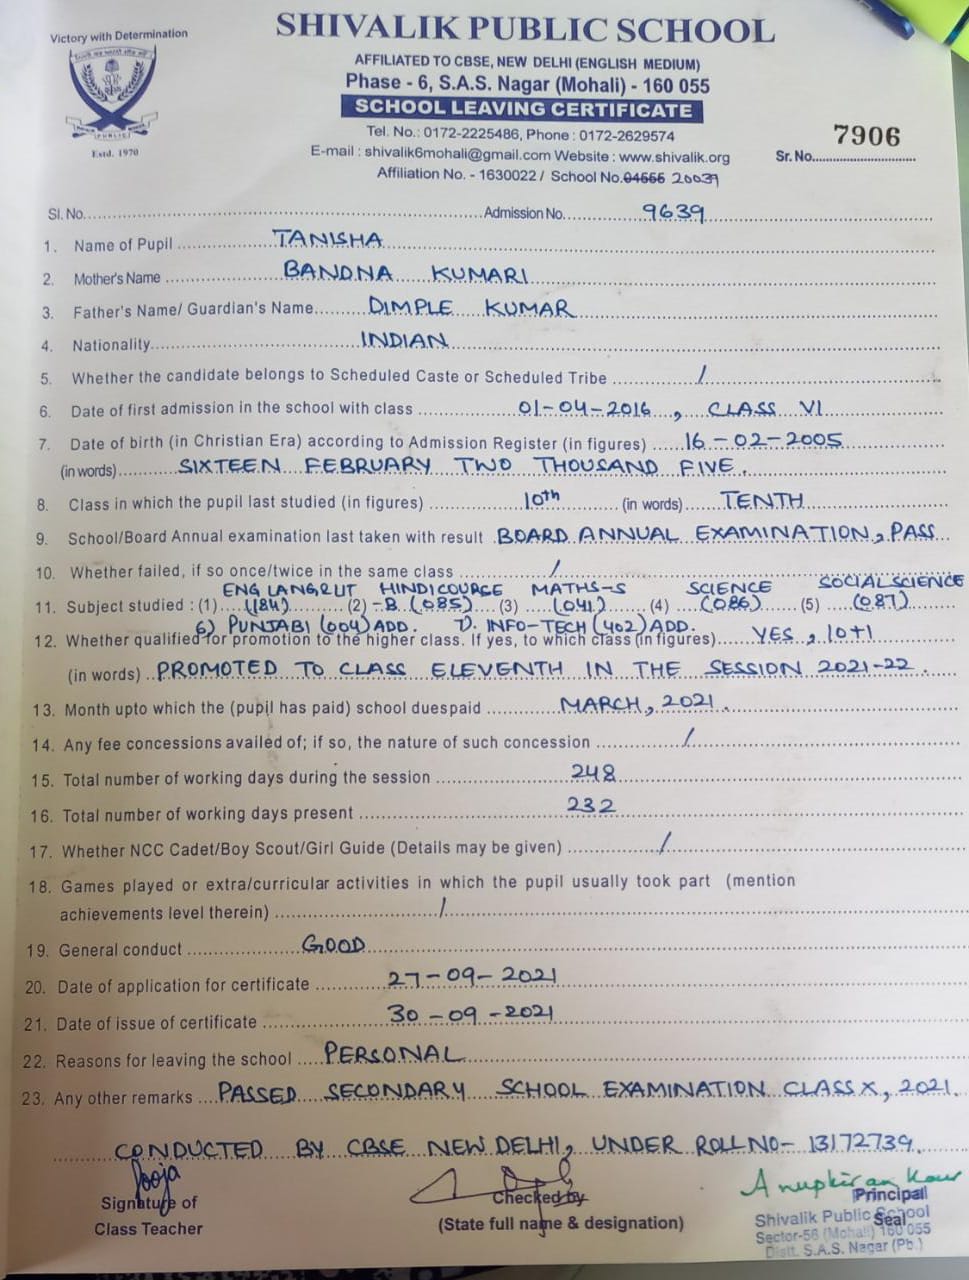 Victory with Determination
Estd. 1970
SHIVALIK PUBLIC SCHOOL
AFFILIATED TO CBSE, NEW DELHI (ENGLISH MEDIUM)
Phase - 6, S.A.S. Nagar (Mohali) - 160 055
SCHOOL LEAVING CERTIFICATE
Tel. No.: 0172-2225486, Phone : 0172-2629574
E-mail : shivalik6mohali@gmail.com Website : www.shivalik.org
7906
Sr. No.
Affiliation No. - 1630022 / School No. 04555 20039
Sl. No. Admission No. 9639
1. Name of Pupil TANISHA
2. Mother's Name BANDNA KUMARI
3. Father's Name/ Guardian's Name DIMPLE KUMAR
4. Nationality INDIAN
5. Whether the candidate belongs to Scheduled Caste or Scheduled Tribe /
6. Date of first admission in the school with class 01-04-2016, CLASS VI
7. Date of birth (in Christian Era) according to Admission Register (in figures) 16-02-2005
(in words) SIXTEEN FEBRUARY TWO THOUSAND FIVE.
8. Class in which the pupil last studied (in figures) 10th (in words) TENTH
9. School/Board Annual examination last taken with result BOARD ANNUAL EXAMINATION, PASS
10. Whether failed, if so once/twice in the same class /
ENG LANG&LIT HINDI COURSE MATHS-S SCIENCE SOCIAL SCIENCE
11. Subject studied : (1) (184) (2) -B (085) (3) (041) (4) (086) (5) (087)
6) PUNJABI (004) ADD. 7). INFO-TECH (402) ADD.
12. Whether qualified for promotion to the higher class. If yes, to which class (in figures) YES, 10+1
(in words) PROMOTED TO CLASS ELEVENTH IN THE SESSION 2021-22.
13. Month upto which the (pupil has paid) school duespaid MARCH, 2021.
14. Any fee concessions availed of; if so, the nature of such concession /
15. Total number of working days during the session 248
16. Total number of working days present 232
17. Whether NCC Cadet/Boy Scout/Girl Guide (Details may be given) /
18. Games played or extra/curricular activities in which the pupil usually took part (mention
achievements level therein) /
19. General conduct GOOD
20. Date of application for certificate 27-09-2021
21. Date of issue of certificate 30-09-2021
22. Reasons for leaving the school PERSONAL
23. Any other remarks PASSED SECONDARY SCHOOL EXAMINATION CLASS X, 2021.
CONDUCTED BY CBSE NEW DELHI, UNDER ROLL NO- 13172739.
Pooja
Signature of
Class Teacher
Checked by
(State full name & designation)
Anupkiran Kaur
Principal
Seal
Shivalik Public School
Sector-56 (Mohali) 160 055
Distt. S.A.S. Nagar (Pb.)